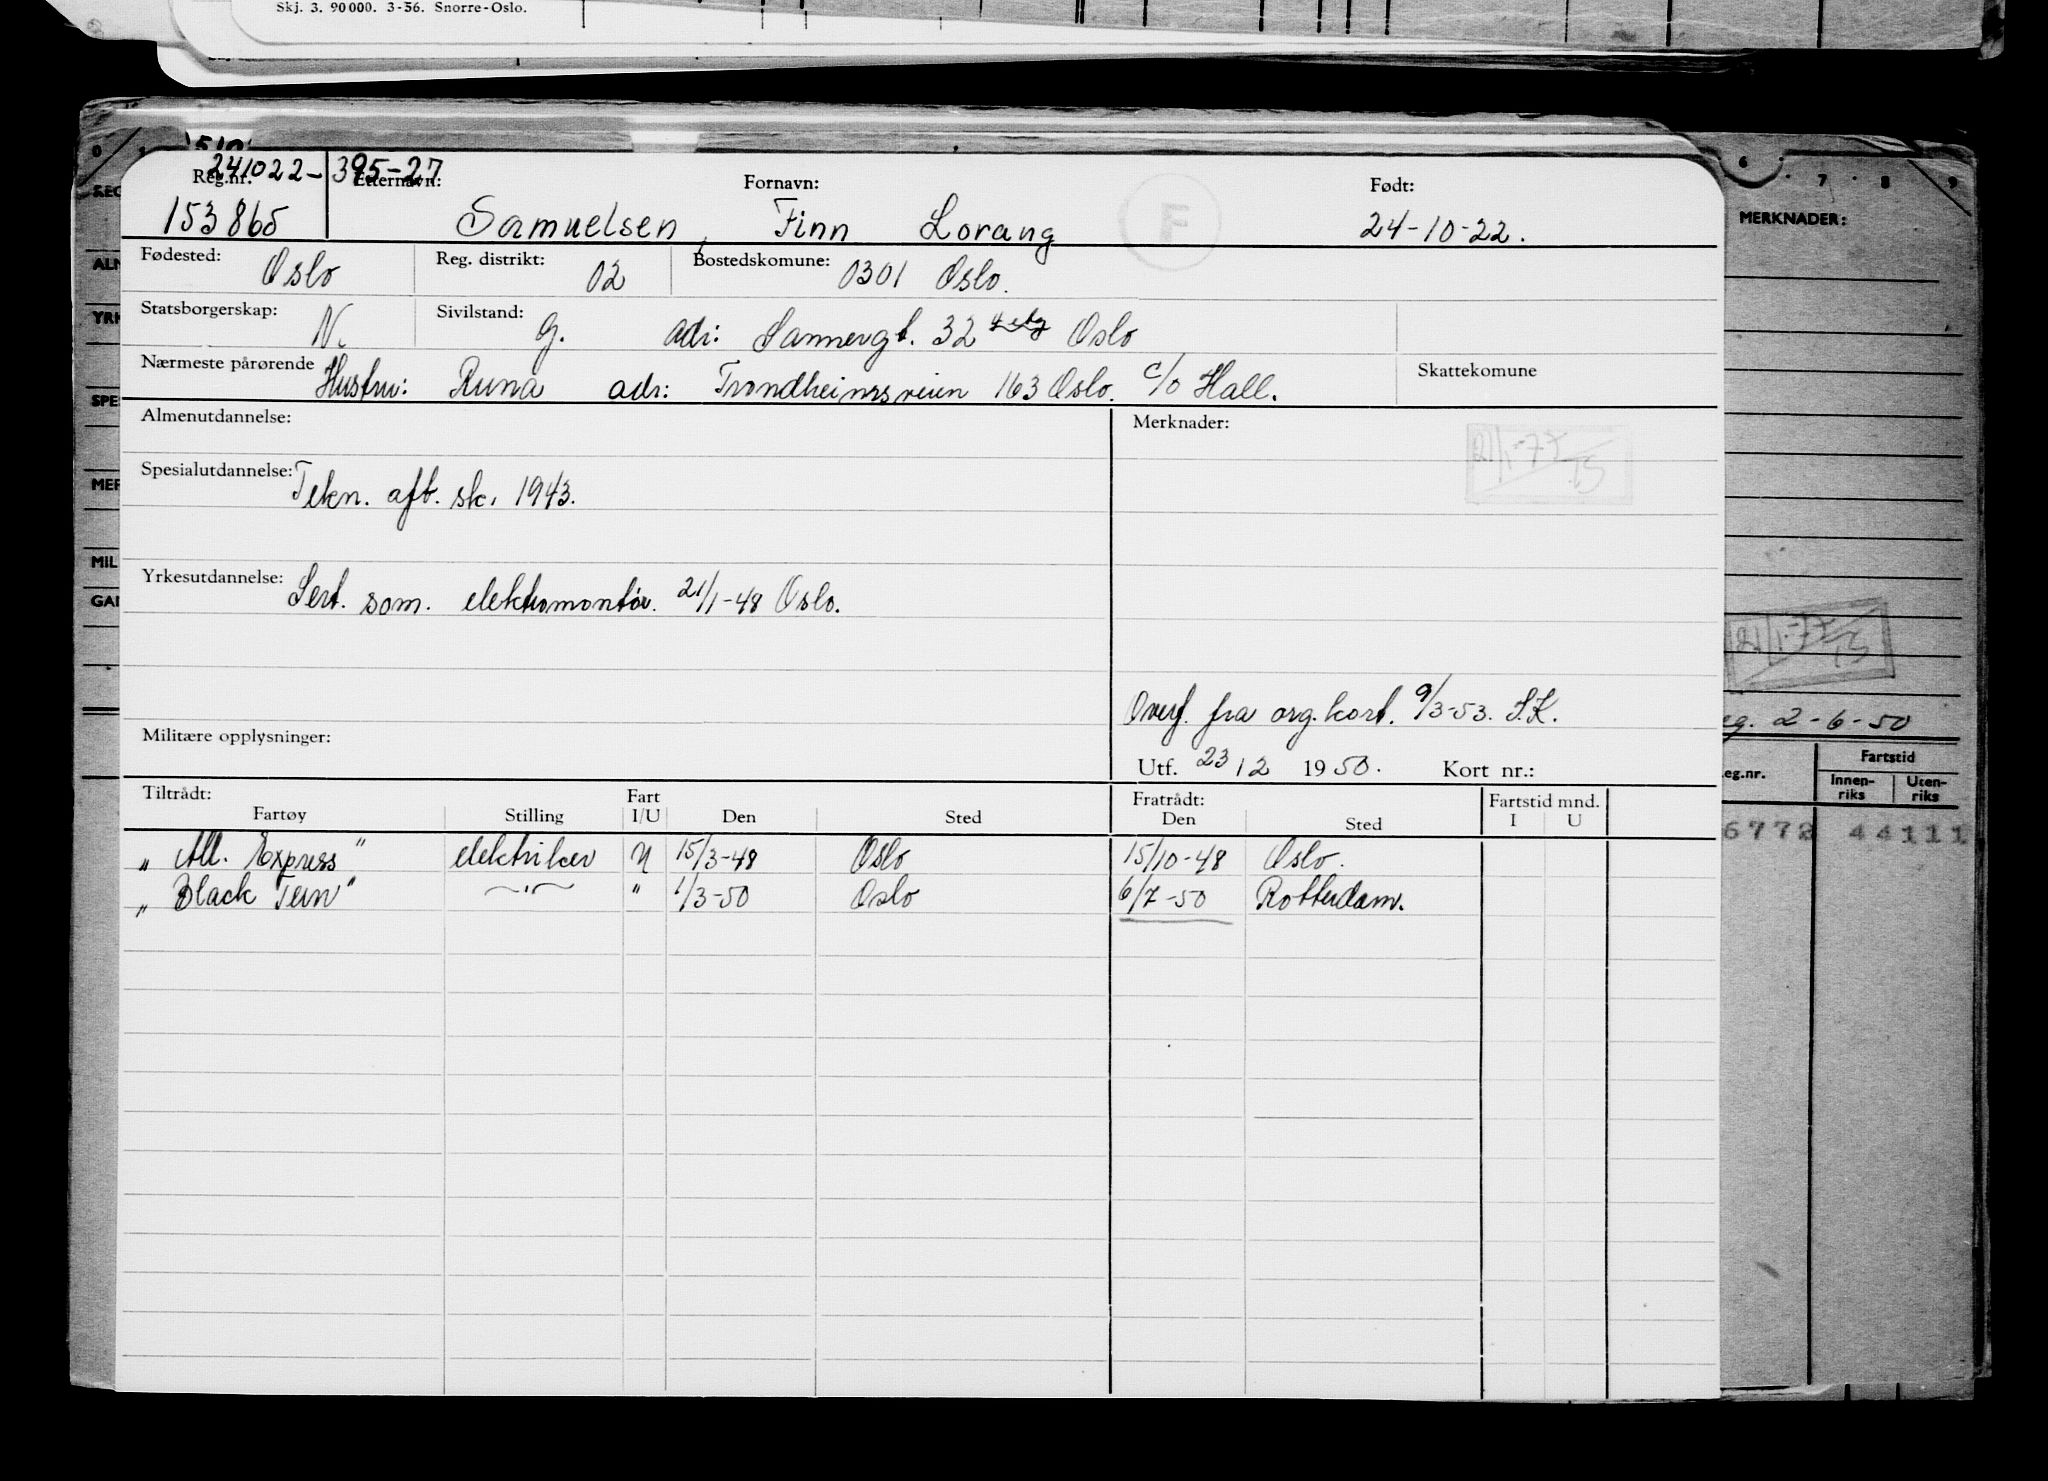 Skj. 3. 90000. 3-56. Snorre-Oslo.
241022-395-27
Reg.nr. Etternavn: Fornavn: Født:
153865 Samuelsen, Finn Lorang F 24-10-22.
Fødested: Oslo Reg. distrikt: 02 Bostedskomune: 0301 Oslo.
Statsborgerskap: N. Sivilstand: G. adr: Sannergt. 32 Oslo
Nærmeste pårørende Hustru: Runa adr: Trondheimsveien 163 Oslo. c/o Hall. Skattekomune
Almenutdannelse: Merknader:
21/1-77
Spesialutdannelse: Tekn. aft. sk. 1943.
Yrkesutdannelse: Sert. som. elektromontør. 21/1-48 Oslo.
Overf. fra org. kort. 9/3-53. S.K.
Militære opplysninger:
Utf. 23/12 1950. Kort nr.:
Tiltrådt: Fart Fratrådt: Fartstid mnd.
Fartøy Stilling I/U Den Sted Den Sted I U
„ All. Express" elektriker U 15/3-48 Oslo 15/10-48 Oslo.
„ Black Tern" -"- " 1/3-50 Oslo 6/7-50 Rotterdam.
6 7 8 9
MERKNADER:
21/1-77
2-6-50
eg.nr. Fartstid
Innen-riks Uten-riks
6772 44111